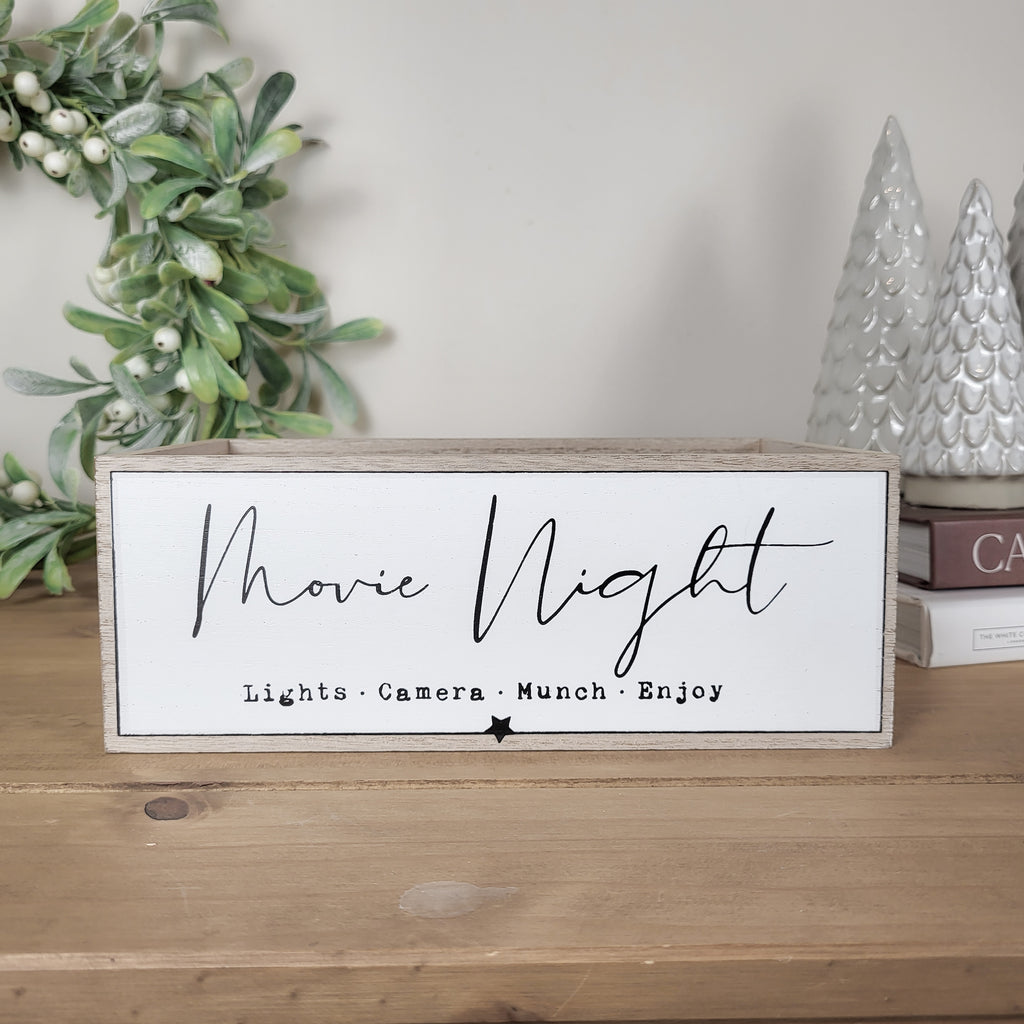 Movie Night
Lights · Camera · Munch · Enjoy
CA
THE WHITE C